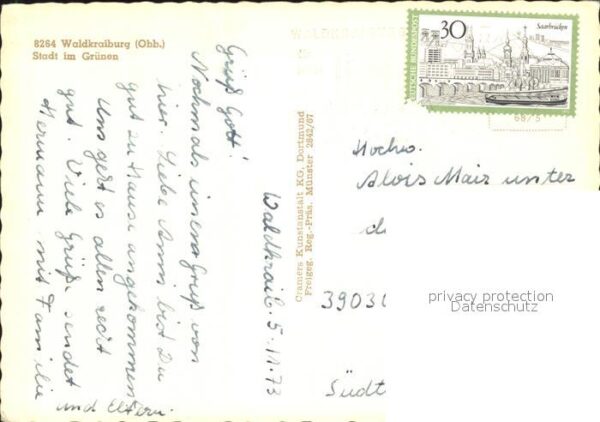 8264 Waldkraiburg (Obb.)
Stadt im Grünen
Waldkraib. 5.11.73
Grüß Gott!
Nochmals einen Gruß von
hier. Liebe Anni bist Du
gut zu Hause angekommen
Uns geht es allen recht
gut. Viele Grüße sendet
Hermann mit Familie
und Eltern.
Cramers Kunstanstalt KG, Dortmund
Freigeg. Reg.-Präs. Münster 2842/67
30
Saarbrücken
DEUTSCHE BUNDESPOST
Hochw.
Alois Mair unter
3903
privacy protection
Datenschutz
Südt